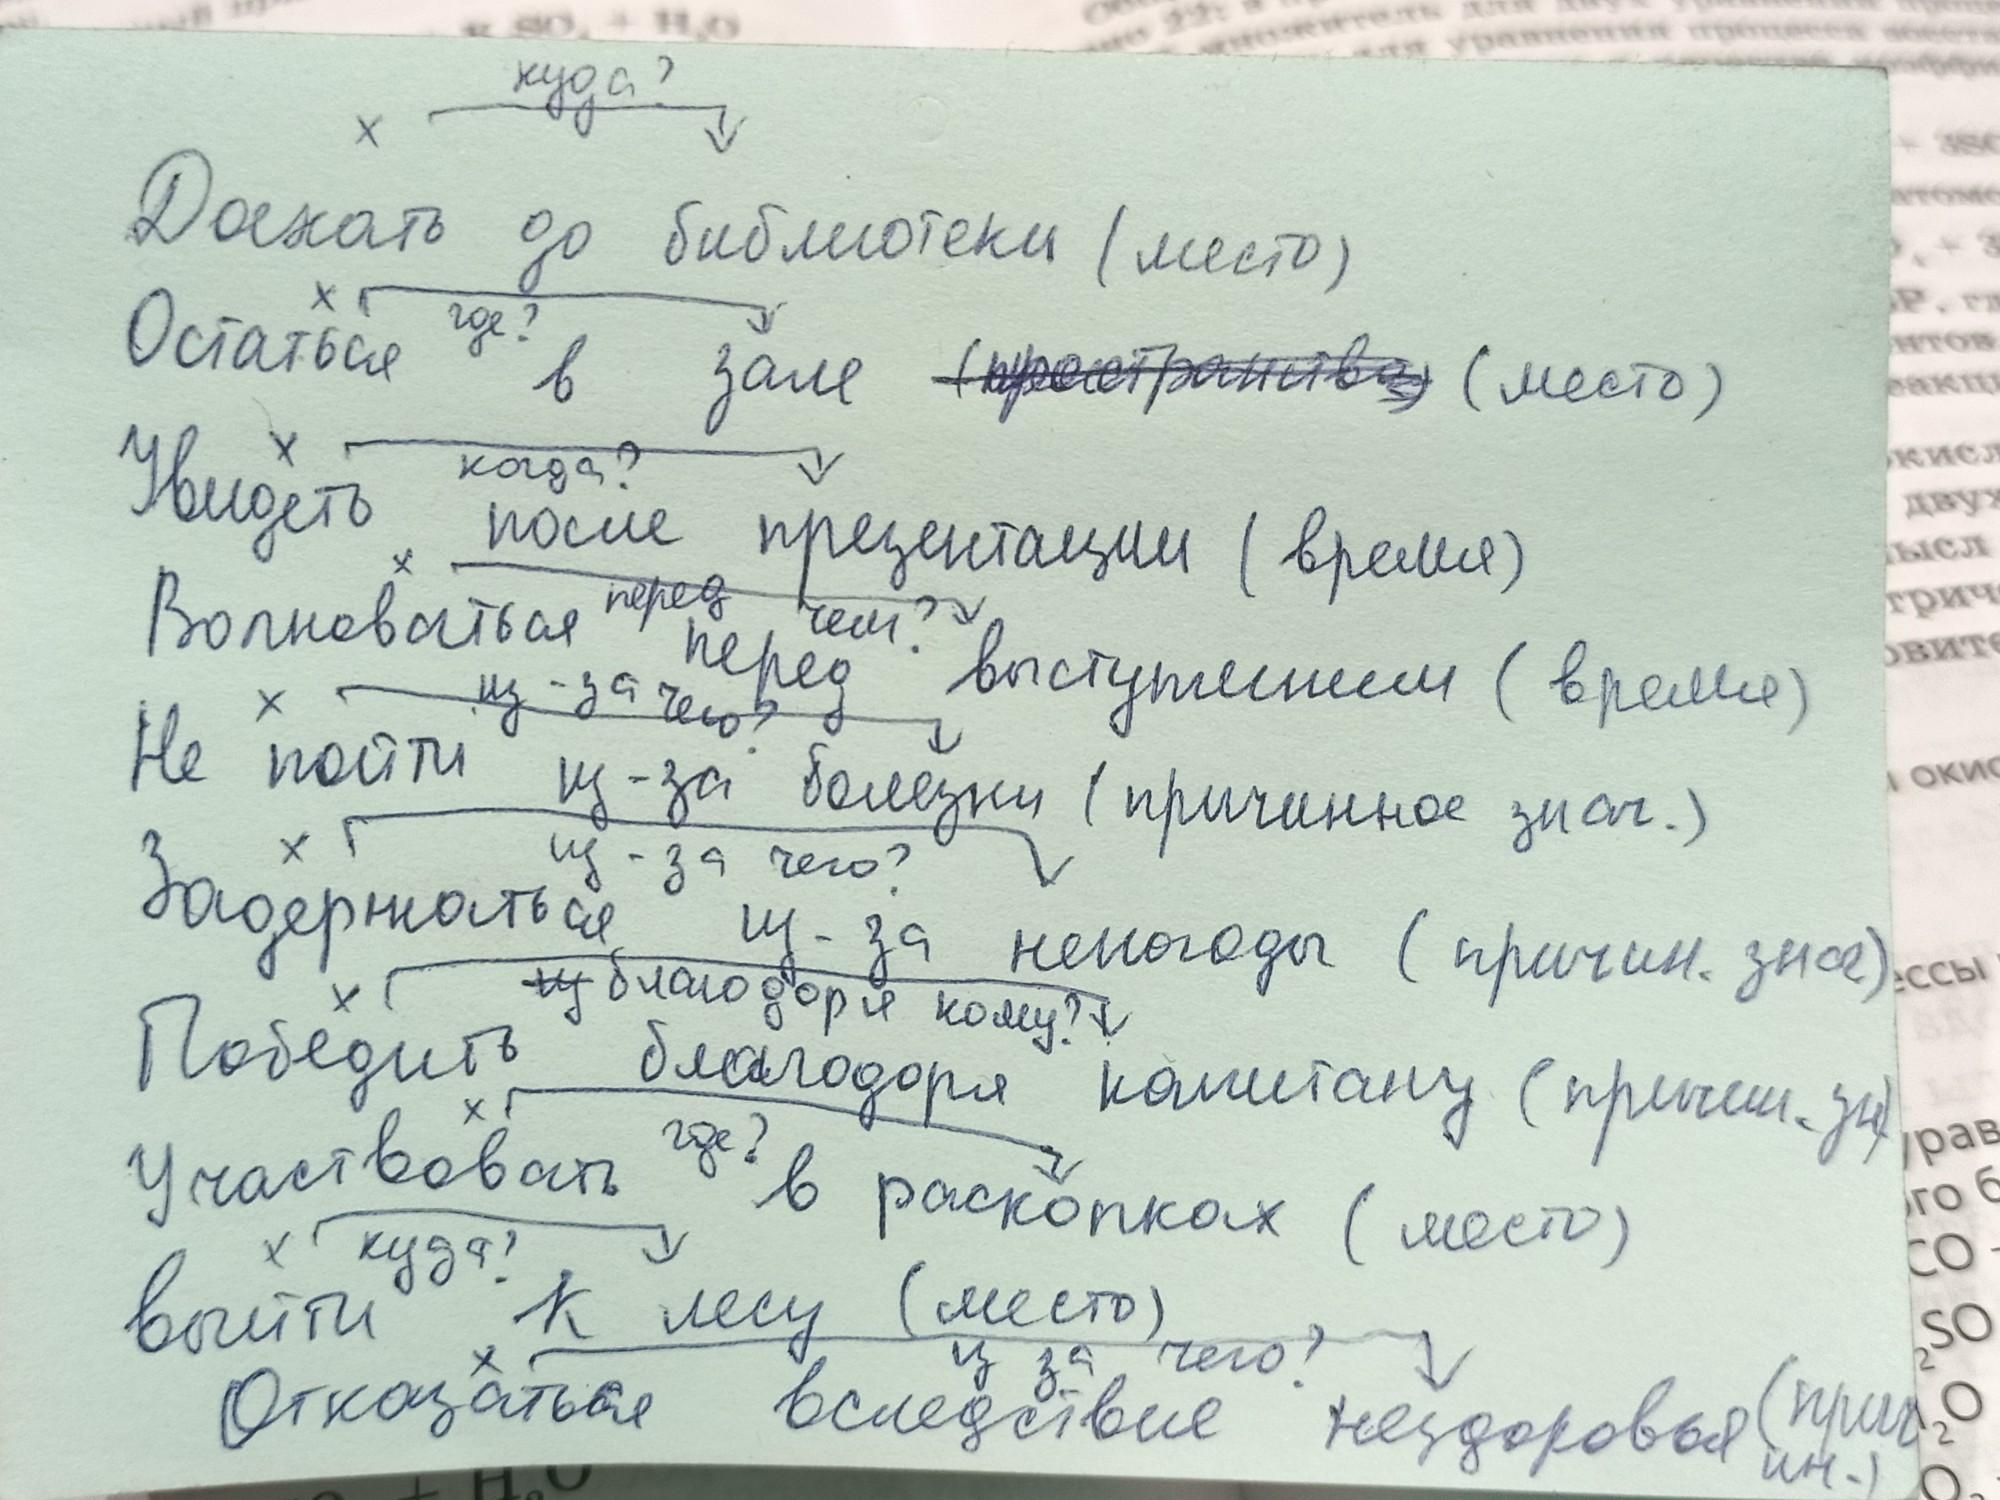 куда?
Доехать до библиотеки (место)
где?
Остаться в зале (пространство) (место)
когда?
Увидеть после презентации (время)
перед чем?
Волноваться перед выступлением (время)
из-за чего?
Не пойти из-за болезни (причинное знач.)
из-за чего?
Задержаться из-за непогоды (причин. знач)
из благодоря кому?
Победить благодоря капитану (причин. зн)
где?
Участвовать в раскопках (место)
куда?
выйти к лесу (место)
из за чего?
Отказаться вследствие нездоровья (прич
ин.)